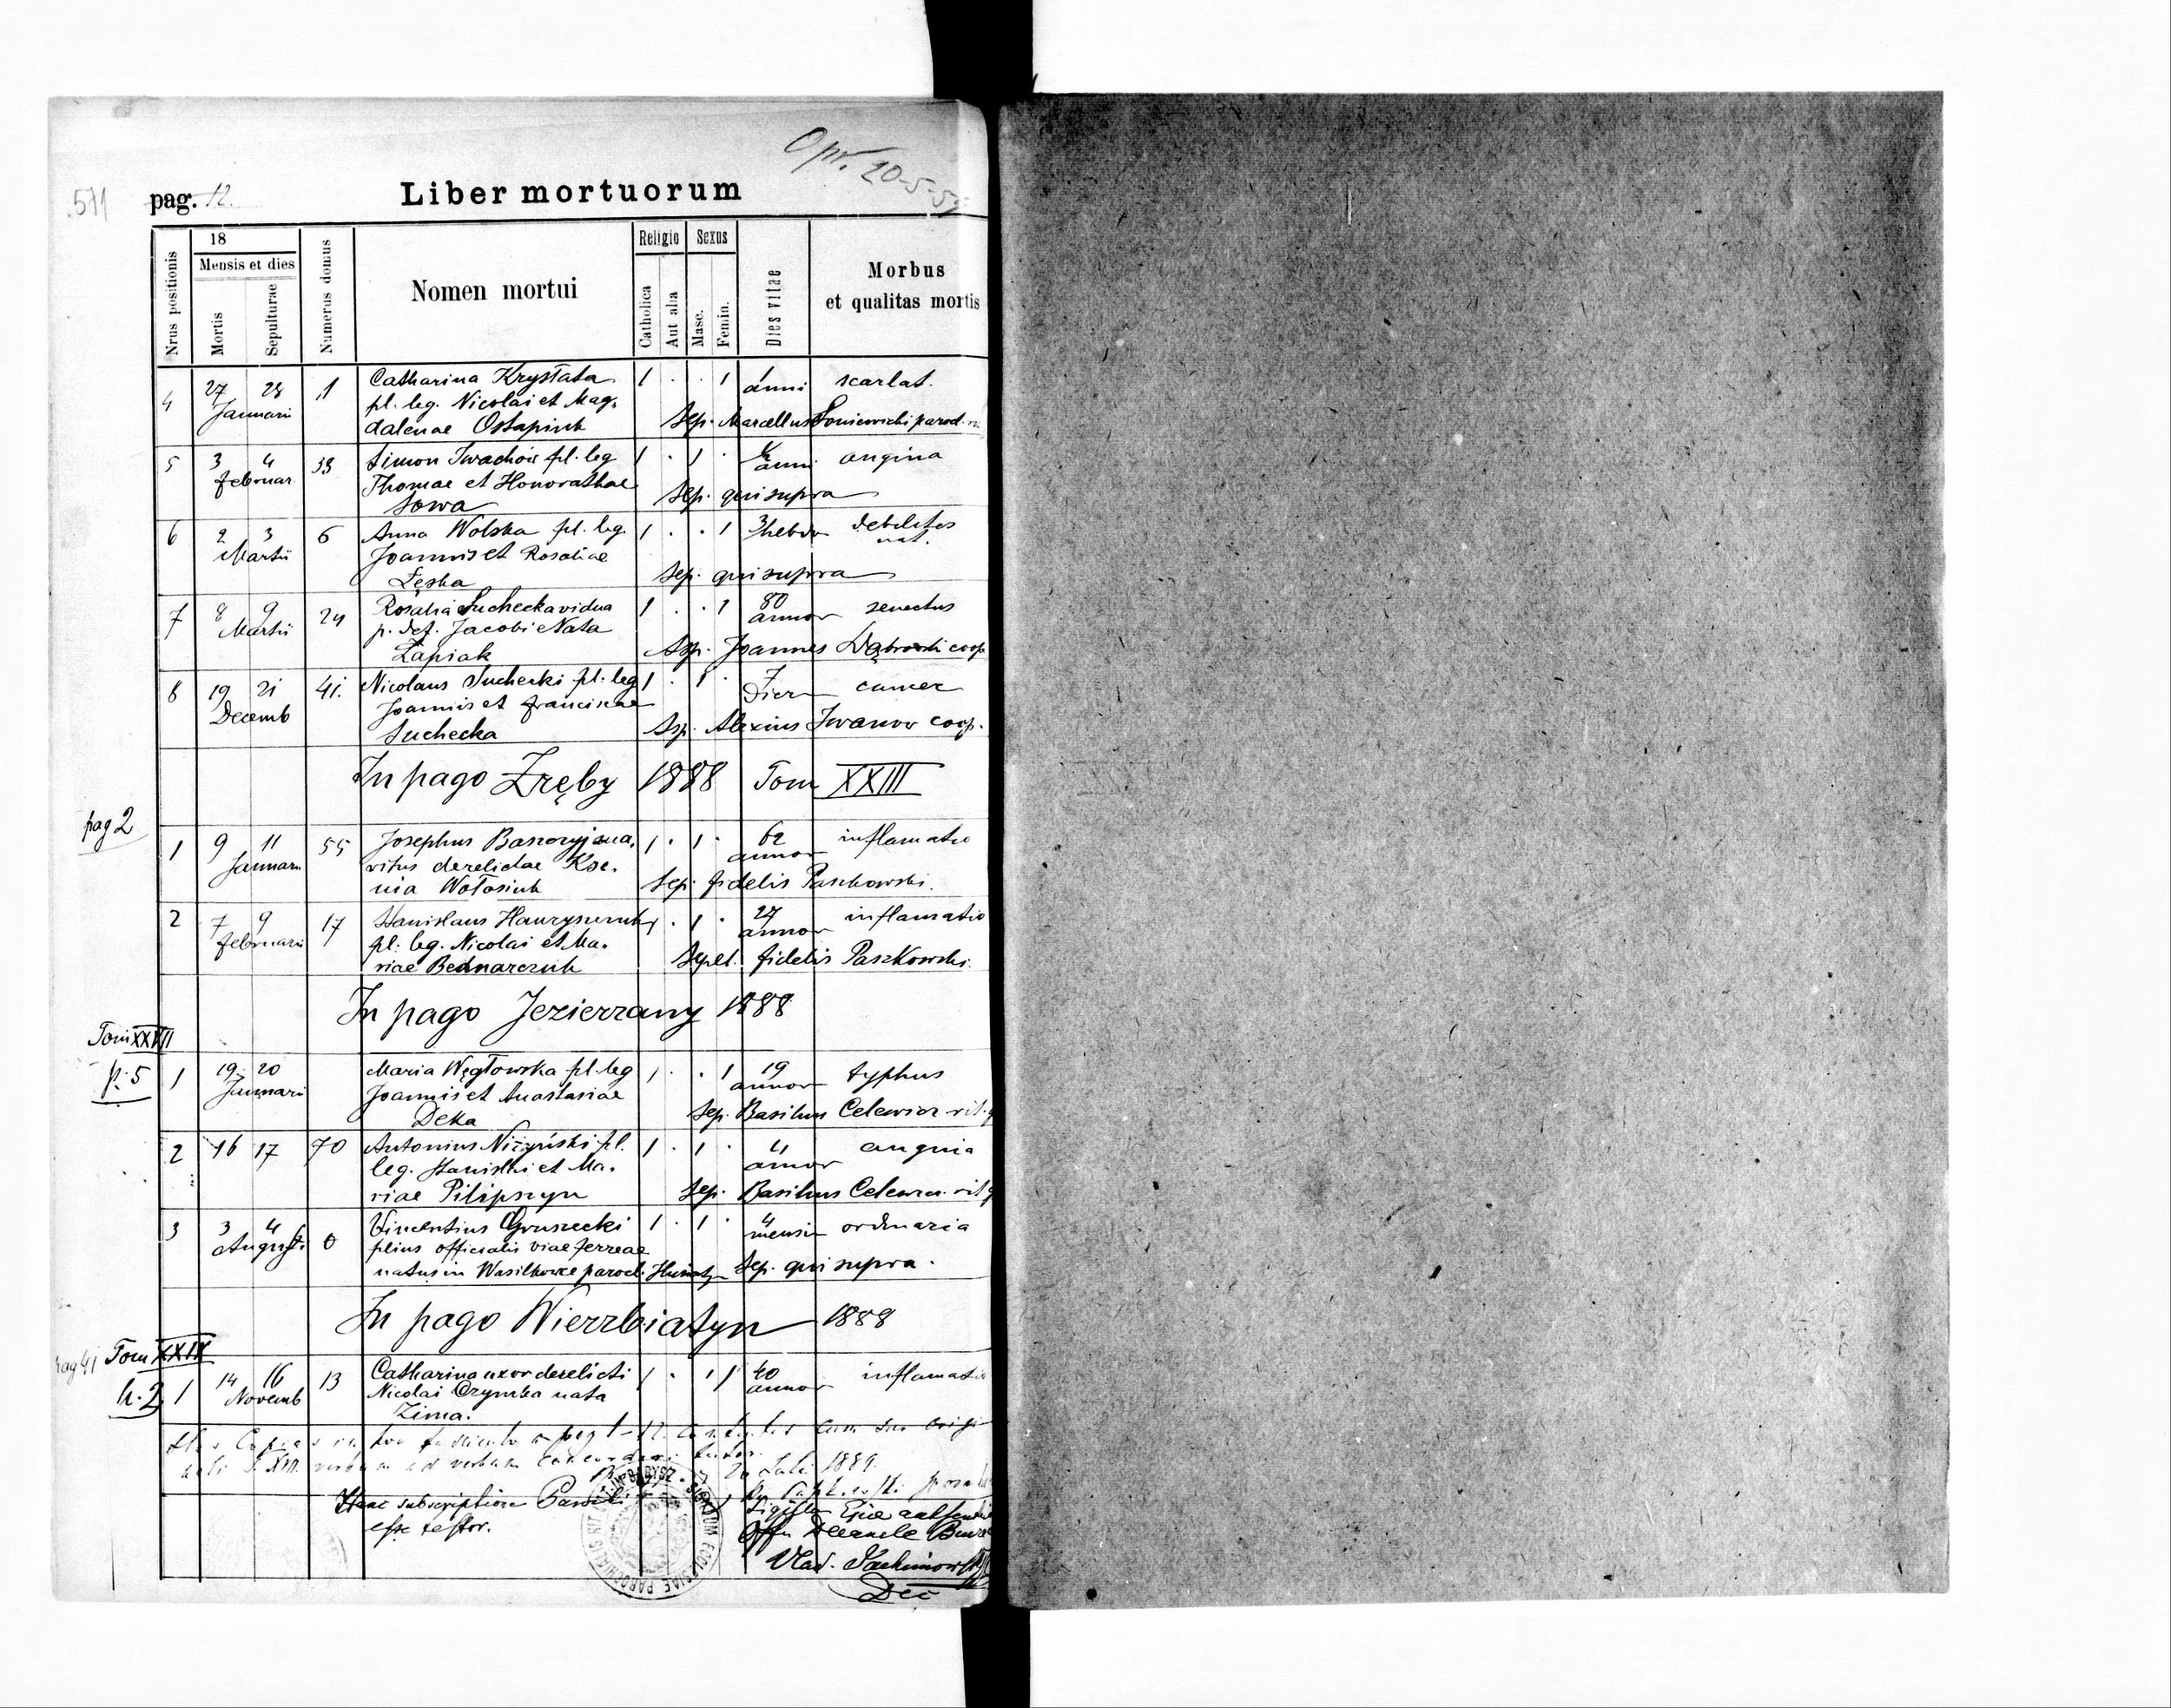 Opr. 20-5-5
511
pag. 12.
Liber mortuorum
Nrus positionis
18
Mensis et dies
Mortis
Sepulturae
Numerus domus
Nomen mortui
Religio
Catholica
Aut alia
Sexus
Masc.
Femin.
Dies vitae
Morbus
et qualitas mortis
4 27 28 1 Catharina Krystata 1 . . 1 1 anni scarlat.
Januarii pl. leg. Nicolai et Mag.
dalenae Ostapiuk Sep. Marcellus paroch.
5 3 4 33 Simon Iwachow pl. leg 1 . 1 . ½ anni angina
Februar. Thomae et Honorathae
Sowa Sep. qui supra
6 2 3 6 Anna Wolska pl. leg. 1 . . 1 3 hebdo debilitas
Martii Joannis et Rosaliae nat.
Łęska Sep. qui supra
7 8 9 24 Rosalia Suchecka vidua 1 . . 1 80 annor senectus
Martii p. def. Jacobi Nata
Łapiak Sep. Joannes Dąbrowski coop
8 19 21 41. Nicolaus Suchecki pl. leg 1 . 1 . 7 dier cancer
Decemb Joannis et Franciscae
Suchecka Sep. Alexius Iwanow coop.
In pago Zręby 1888 Tom XXIII
pag 2
1 9 11 55 Josephus 1 . 1 . 62 annor inflamatio
Januarii vitus derelictae Kse.
nia Wołosiuk Sep. Fidelis Paszkowski.
2 7 9 17 Stanislaus 1 . 1 . 27 annor inflamatio
Februarii pl. leg. Nicolai et Ma.
riae Bednarczuk Sepel. Fidelis Paszkowski.
In pago Jezierzany 1888
Tom XXVII
p. 5
1 19 20 Maria Węgłowska pl. leg 1 . . 1 19 annor typhus
Januarii Joannis et Anastasiae
Deka Sep. Basilius Celewicz rit. g
2 16 17 70 Antonius Niżyński pl. 1 . 1 . 4 annor angina
leg. Stanislai et Ma.
riae Pilipszyn Sep. Basilius Celewicz rit g
3 3 4 0 Vincentius Gruszecki 1 . 1 . 4 mensin ordinaria
Augusti filius officialis viae ferreae
natus in Wasilkowce paroch. Husiatyn Sep. qui supra.
In pago Wierzbiatyn 1888
pag 41 Tom XXIX
p. 2
1 14 16 13 Catharina uxor derelicti 1 . . 1 40 annor inflamatio
Novemb Nicolai Czymba nata
Zima.
verbum ad verbum
Juli 1889
Hanc subscriptione Parochi
esse testor.
Vlad.
Dec